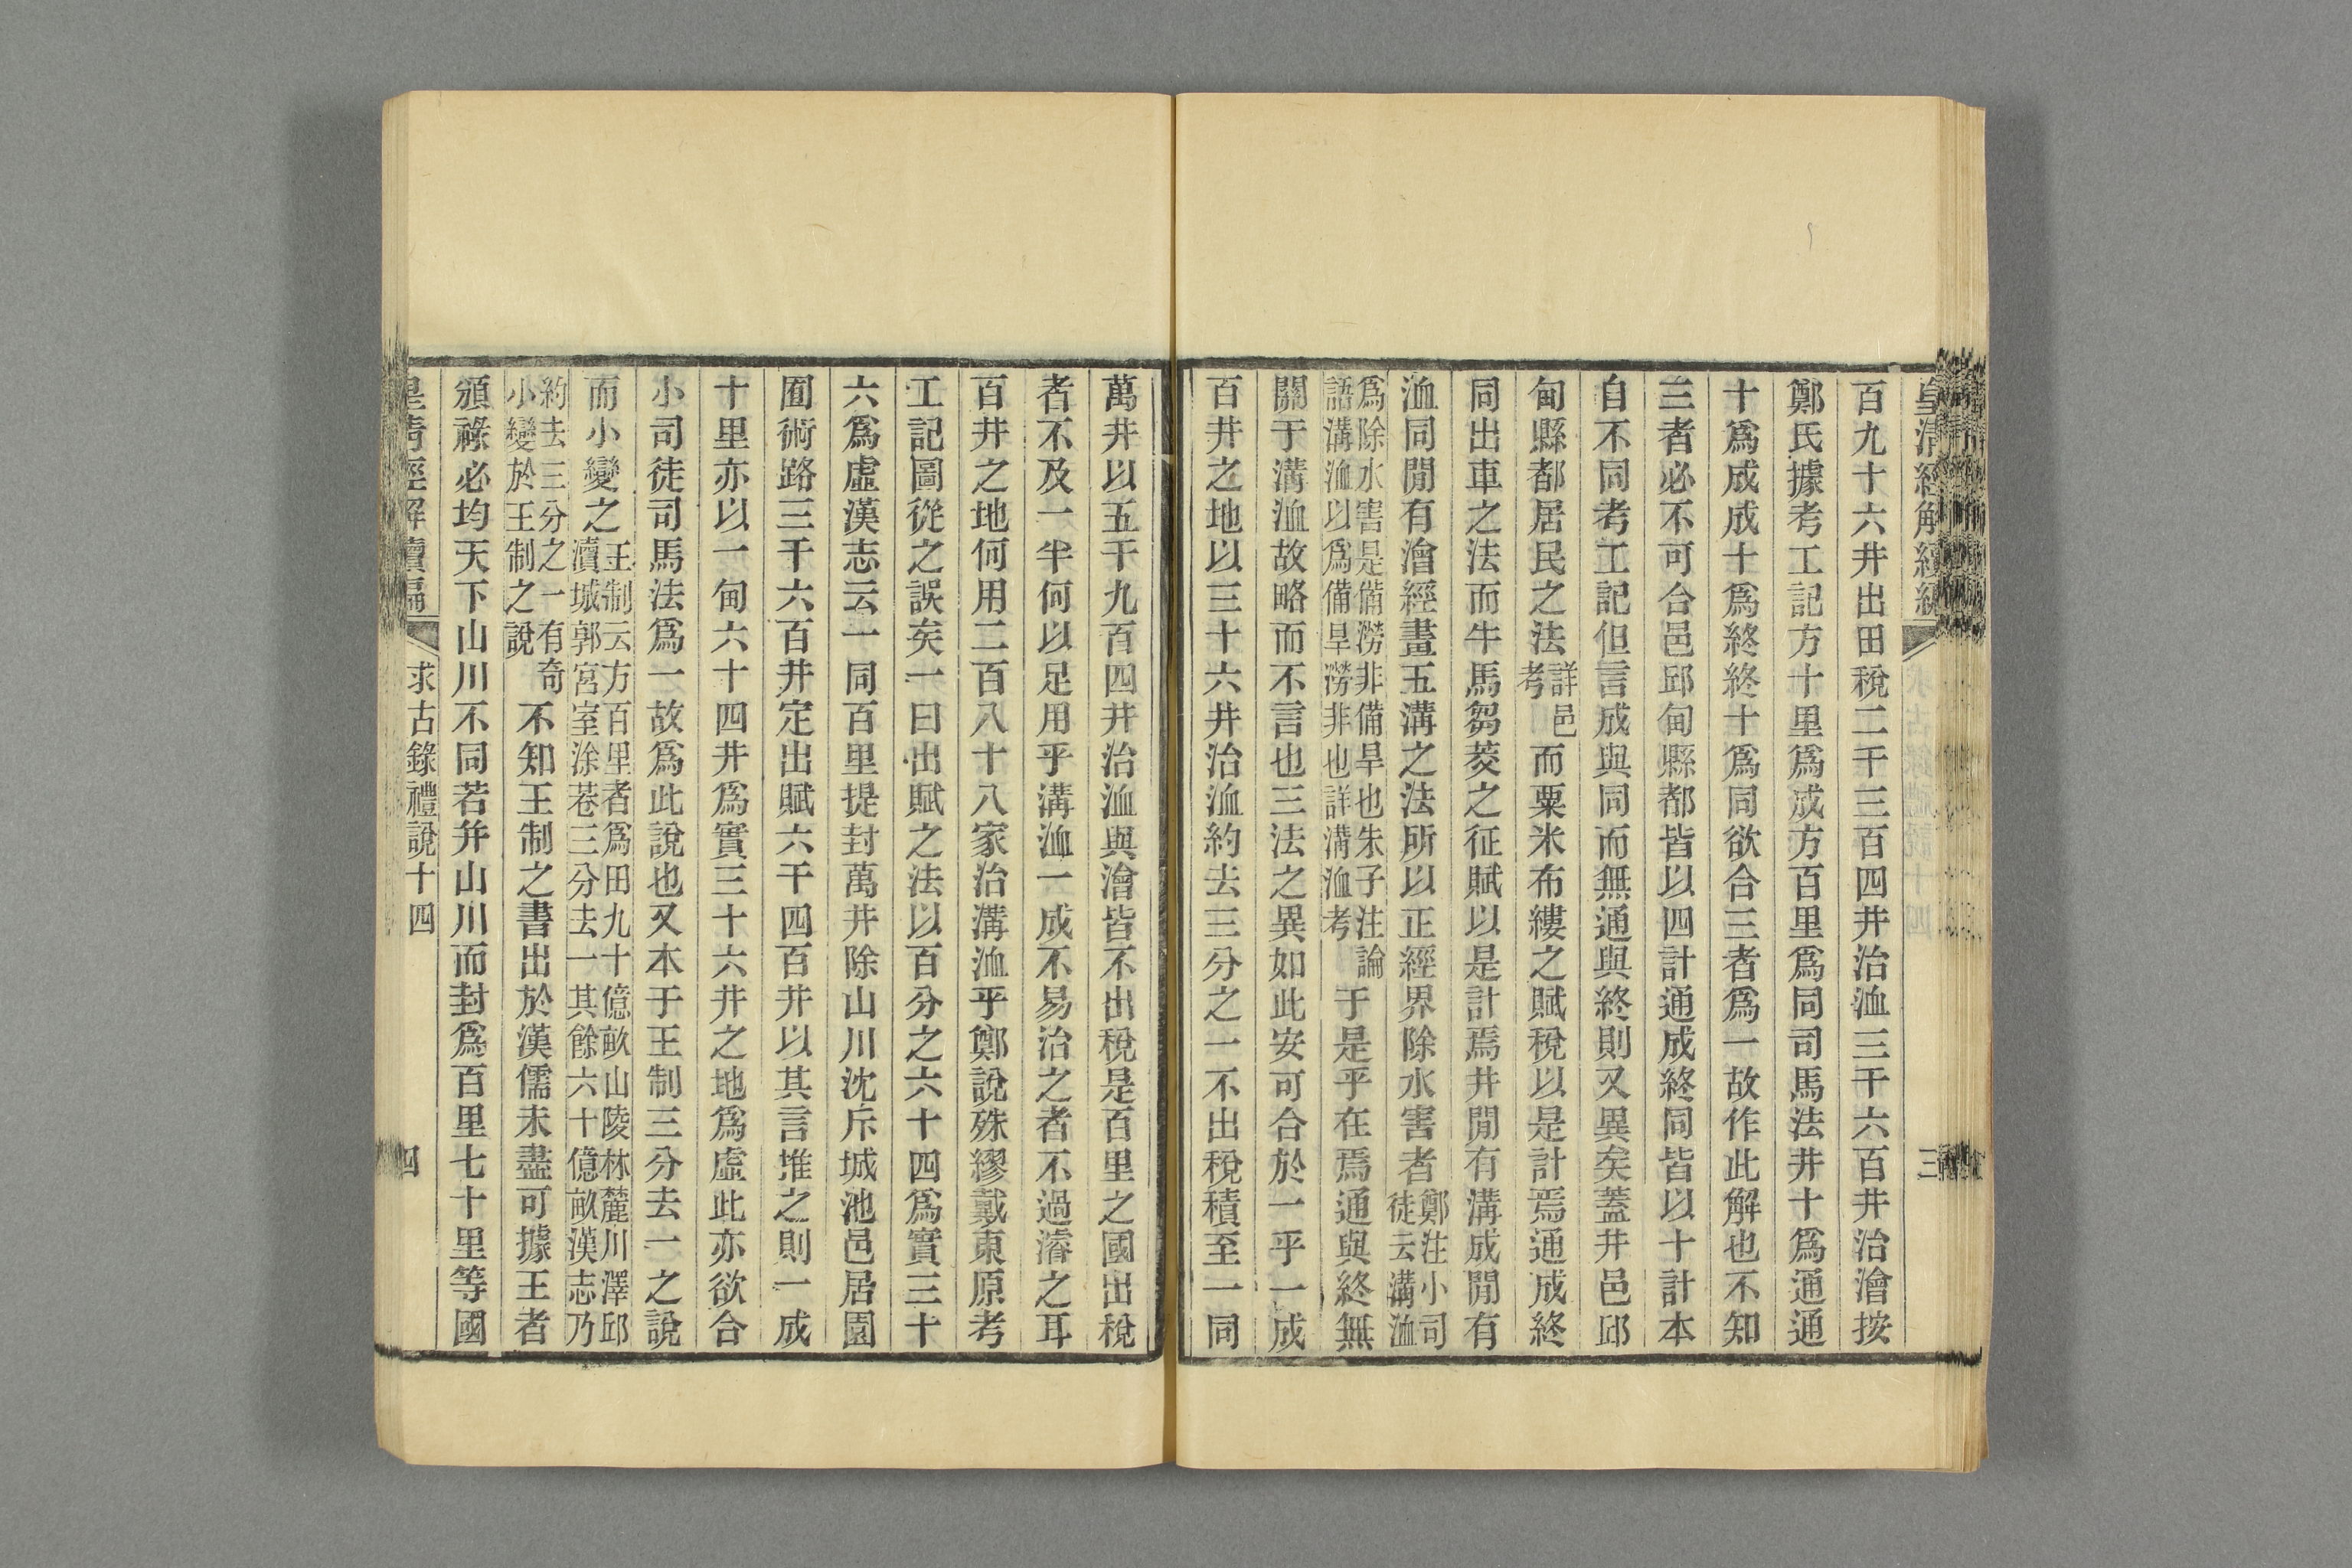 皇清經解續編
三
百九十六井出田稅二千三百四井治洫三千六百井治澮按
鄭氏據考工記方十里爲成方百里爲同司馬法井十爲通通
十爲成成十爲終終十爲同欲合三者爲一故作此解也不知
三者必不可合邑邱甸縣都皆以四計通成終同皆以十計本
自不同考工記但言成與同而無通與終則又異矣蓋井邑邱
甸縣都居民之法詳邑考而粟米布縷之賦稅以是計焉通成終
同出車之法而牛馬芻茭之征賦以是計焉井閒有溝成閒有
洫同閒有澮經畫五溝之法所以正經界除水害者鄭注小司徒云溝洫
爲除水害是備澇非備旱也朱子注論語溝洫以爲備旱澇非也詳溝洫考于是乎在焉通與終無
關于溝洫故略而不言也三法之異如此安可合於一乎一成
百井之地以三十六井治洫約去三分之一不出稅積至一同
萬井以五千九百四井治洫與澮皆不出稅是百里之國出稅
者不及一半何以足用乎溝洫一成不易治之者不過濬之耳
百井之地何用二百八十八家治溝洫乎鄭說殊繆戴東原考
工記圖從之誤矣一曰出賦之法以百分之六十四爲實三十
六爲虛漢志云一同百里提封萬井除山川沈斥城池邑居園
囿術路三千六百井定出賦六千四百井以其言推之則一成
十里亦以一甸六十四井爲實三十六井之地爲虛此亦欲合
小司徒司馬法爲一故爲此說也又本于王制三分去一之說
而小變之王制云方百里者爲田九十億畝山陵林麓川澤邱瀆城郭宮室涂巷三分去一其餘六十億畝漢志乃
約去三分之一有奇小變於王制之說不知王制之書出於漢儒未盡可據王者
頒祿必均天下山川不同若并山川而封爲百里七十里等國
皇清經解續編
求古錄禮說十四
四